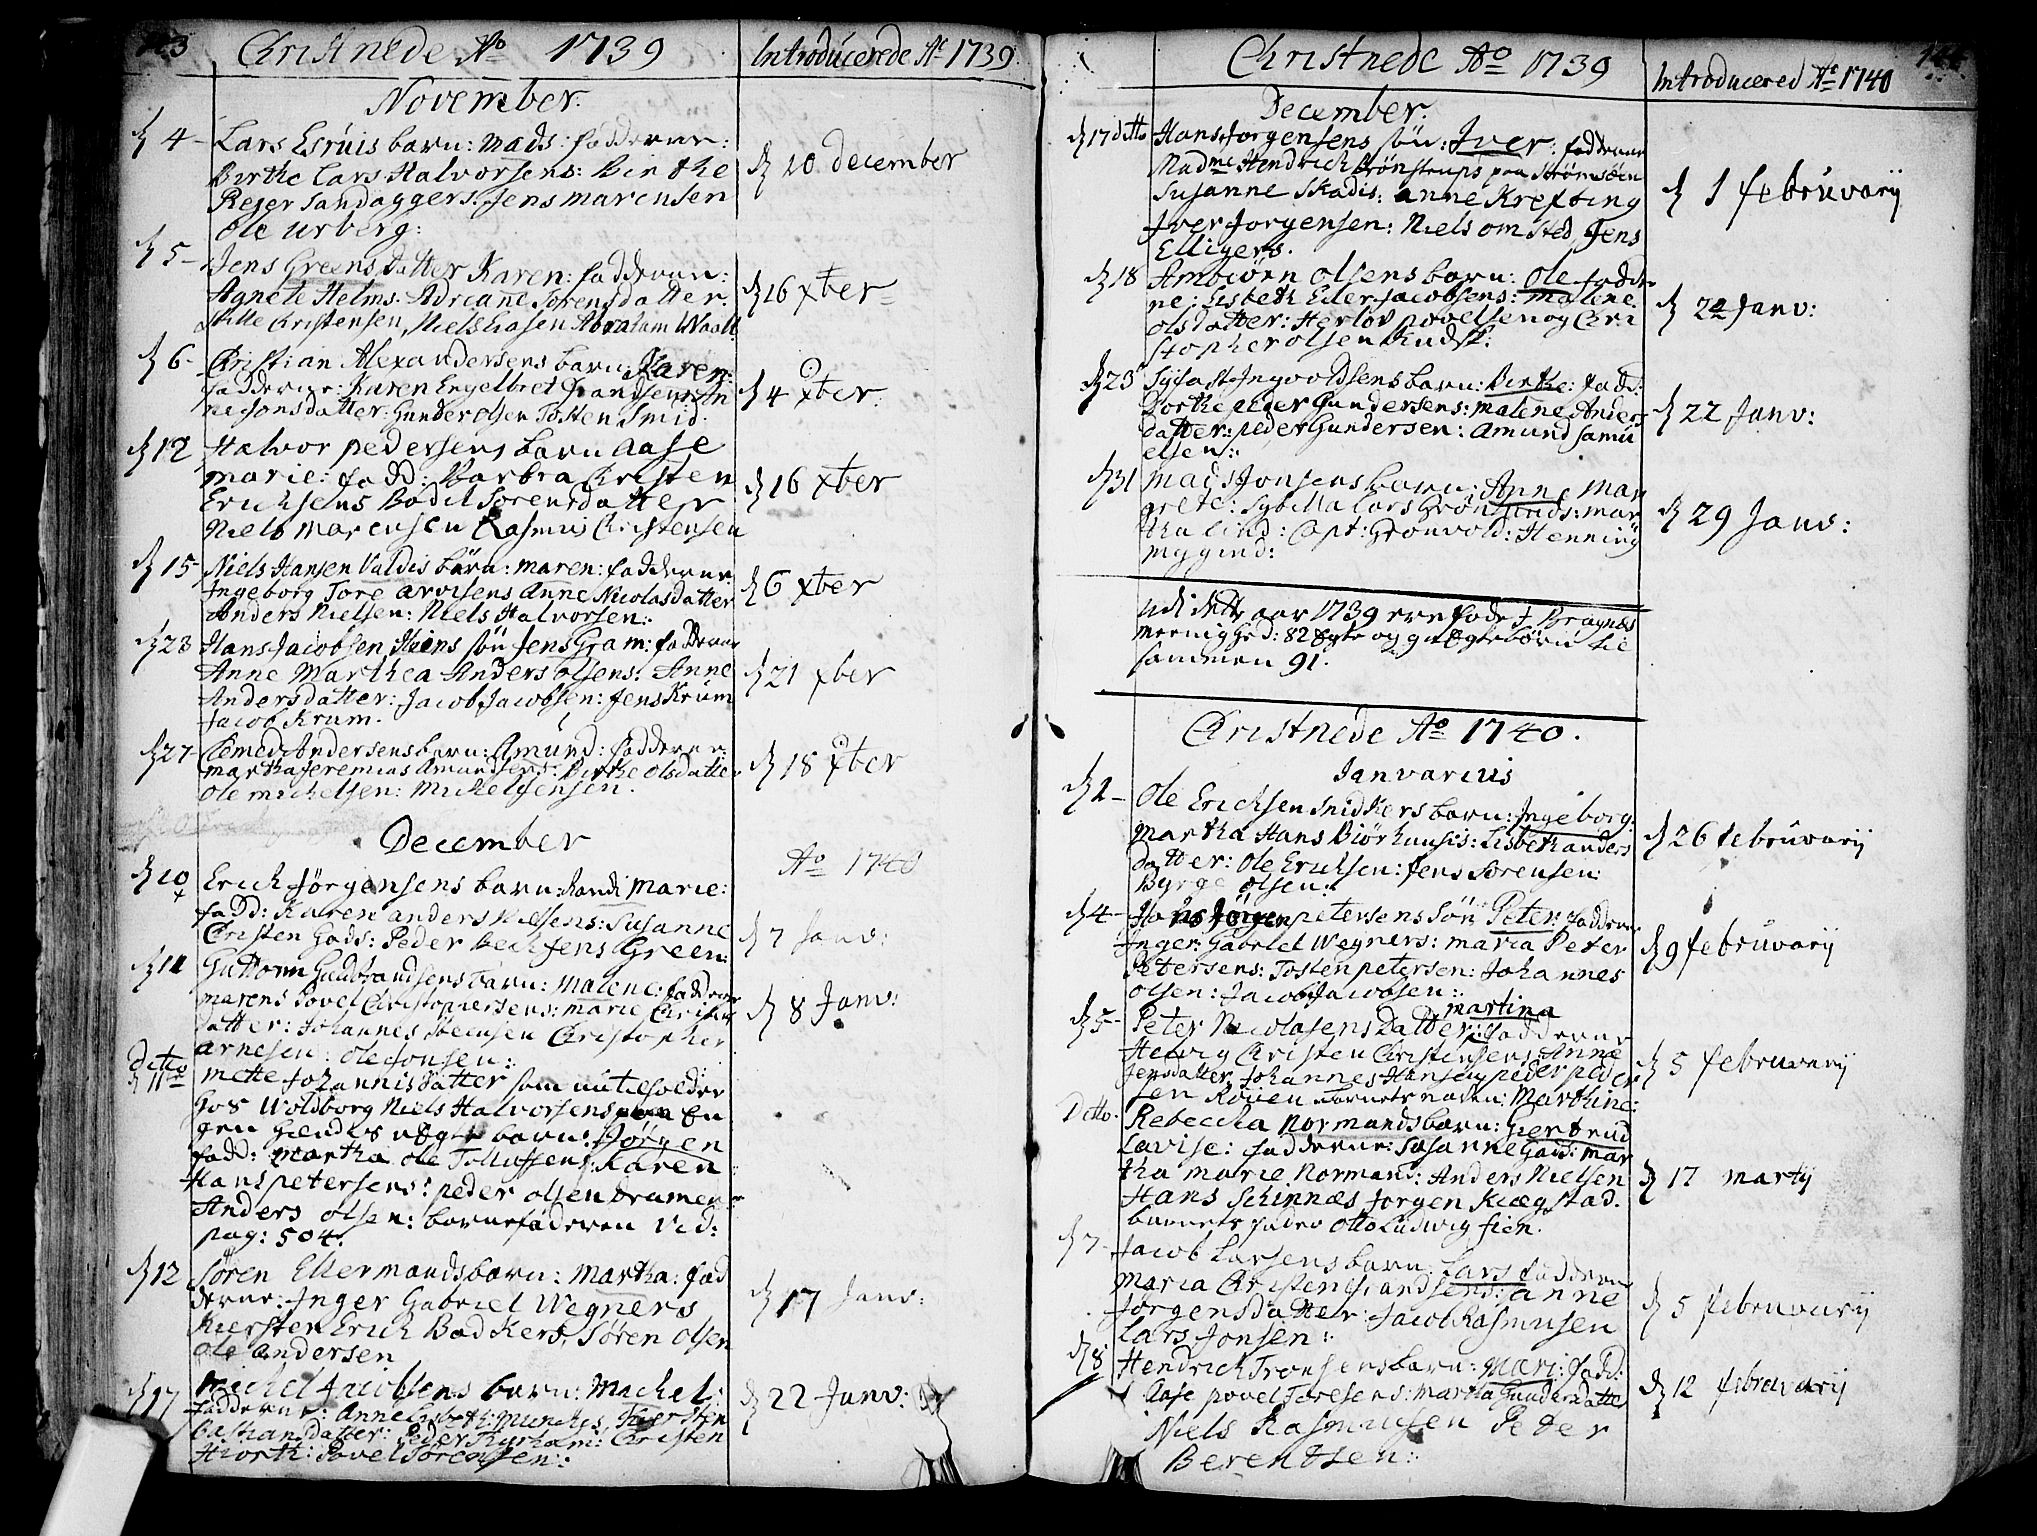 Christnede Ao 1739
Introducerede Ao 1739
November.
d 4 - Lars Esruis barn: Mads: fadderne:
Birthe Lars Halvorsens: Birthe
Rejer Sandaggers: Jens Marensen
Ole Urberg:
d 10 december
d 5 - Jens Greens datter Karen: fadderne:
Agnete Helms. Adriane Sorensdatter.
Christensen, Niels Abraham Waall
d 16 xber
d 6 - Christian Alexandersens barn: Karen:
fadderne: Karen Engelbret An
ne Jonsdatter: Gunder olsen Tosten Smid.
d 4 xber.
d 12 Halvor pedersens barn Aase
marie: fadd: Barbra Christen
Erichsens Bodil Sorensdatter
Niels Marensen Rasmus Christensen
d 16 xber
d 15 - Niels Hansen Valdis barn: maren: fadderne
Ingeborg Tore arvesens Anne Nicolasdatter
Anders Nielsen: Niels Halvorsen:
d 6 xber
d 23 Hans Jacobsen Heins søn Jens Gram: fadderne
Anne Marthea Anders olsens: Anne
Andersdatter: Jacob Jacobsen: Jens Krum
Jacob Krum.
d 21 xber
d 27 - Clemed Andersens barn: Amund: fadderne
martha Jeremias Amundsens: Birthe olsdatter
Ole michelsen: Michel Jensen.
d 18 xber
December
Ao 1740
d 10 Erich Jørgensens barn: Randi marie:
fadd: Karen anders Nielsens: Susanne
Christen Gads: Peder Green:
d 7 Janv:
d 11 Guttorm Guldbrandsens barn: malene: fadderne
marens Povel Christophersens: marie Christens
datter: Johannes Steensen Christopher
arnesen: Ole Jonsen:
d 8 Janv:
Ditto
d 11te mette Johannisdatter som
hos Woldborg Niels Halvorsens
barn: Jørgen
fadd: Martha Ole Tollufsens: Karen
Hans petersens: peder olsen Dramen
Anders olsen: barnefaderen vid:
pag: 504.
d 12 Søren Ellermands barn: Martha: fad
derne: Inger Gabriel Wegners
Kiersten Erich Bødkers, Søren Olsen
Ole andersen
d 17 Janv:
d 17 Michel Jacobsens barn: Michel:
fadderne: Anne Lisbeth Munchs, Kiersten
datter: Peder Kyrham: Christen
Hiorth: Povel Sørensen:
d 22 Janv:
Christnede Ao 1739
Introducered Ao 1740
December.
d 17 ditto Hans Jørgensens søn: Iver: fadderne
Madme Hendrich Brønstrups paa Strømsøen
Susanne Skadis: Anne Krefting
Iver Jorgensen: Niels omsted Jens
Elligers.
d 1 februvarij
d 18 Ambiørn olsens barn: Ole fadder
ne: Lisbeth Eiler Jacobsens: Malene
olsdatter: Herlov povelsen og Chri
stopher olsen Kudsk:
d 24 Janv:
d 23 Ingvoldsens barn: Birthe: fadd:
Dorthe peder Gundersens: Malene Anders
datter: peder Gundersen: Amund Samu
elsen:
d 22 Janv:
d 31 Mads Jonsens barn: Anne Mar
grete: Sybilla Lars Grønlunds: mar
tha Lind: Capt: Gronvold: Henning
Mygind:
d 29 Janv:
Udi dette aar 1739 ere føde i Bragnæs
meenighed: 82 Ægte og 9 uÆgte børn til
sammen 91.
Christnede Ao 1740.
Janvarius
d 2 - Ole Erichsen Snidkers barn: Ingeborg:
Martha Hans Biørkunsis: Lisbeth anders
datter: Ole Erichsen: Jens Sorensen:
Byrge olsen:
d 26 februvarij
d 4 - Hans Jörgen petersens Sön Peter: fadderne
Inger Gabriel Wegners: maria Peter
Petersens: Tosten petersen: Johannes
olsen: Jacob Jacobsen:
d 9 februvarij
martina
d 5 - Peter Nicolasens Datter: fadderne
Hedvig Christen Christensens: Anne
Jensdatter, Johannes Hansen, peder peder
sen Røuen Barnets navn: Marthine:
d 5 februvarij
Ditto. Rebeccha Normands barn: Giertrud
Lavise: fadderne: Susanne Gads: mar
tha marie Normand: Anders Nielsen
Hans Schinnæs Jørgen Kiægstad.
barnets fader Otto Ludwig fien.
d 17 martij
d 7 - Jacob Larsens barn: Lars fadderne
Maria Christen anne
Jørgensdatter: Jacob Rasmusen
Lars Jonsen:
d 5 februvarij
d 8 Hendrich Tronsens barn: Mari: fadd:
Aase povel Toresens: Martha Gundersdatter
Niels Rasmusen Peder
Berentsen:
d 12 februvarij